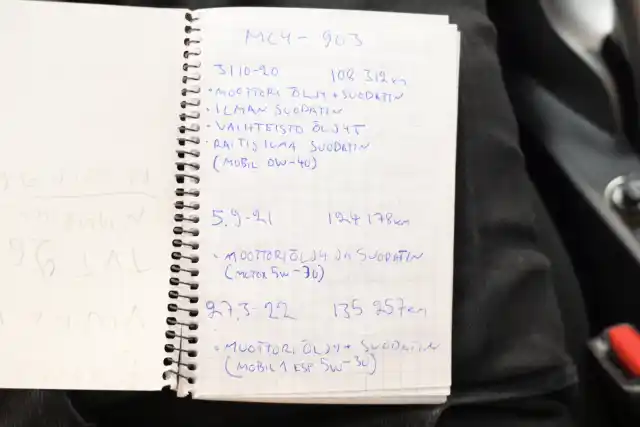 MCY-903
3110-20 108 312km
• MOOTTORI ÖLJY + SUODATIN
• ILMAN SUODATIN
• VAIHTEISTO ÖLJYT
• RAITISILMA SUODATIN
(MOBIL 0W-40)
5.9-21 124 178km
• MOOTTORIÖLJY JA SUODATIN
(MOTOX 5W-30)
27.3-22 135 257km
• MOOTTORI ÖLJY + SUODATIN
(MOBIL 1 ESP 5W-30)